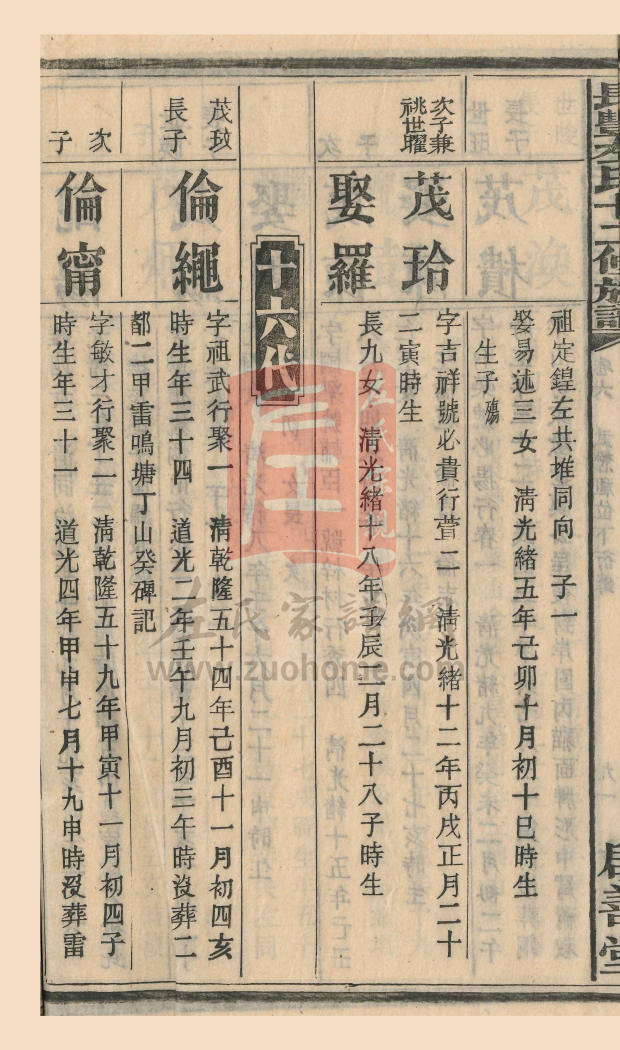 長豐左氏十二修族譜
啟善堂
祖定鍠左共堆同向 子一
娶易述三女 淸光緒五年己卯十月初十巳時生
生子殤
次子兼
祧世曜
茂玲
字吉祥號必貴行萱二 淸光緒十二年丙戌正月二十
二寅時生
娶羅
長九女 淸光緒十八年壬辰二月二十八子時生
十六代
茂玟
長子
倫繩
字祖武行聚一 淸乾隆五十四年己酉十一月初四亥
時生年三十四 道光二年壬午九月初三午時沒葬二
都二甲雷鳴塘丁山癸碑記
次
子
倫甯
字敏才行聚二 淸乾隆五十九年甲寅十一月初四子
時生年三十一 道光四年甲申七月十九申時沒葬雷
左氏家譜網
www.zuohome.com